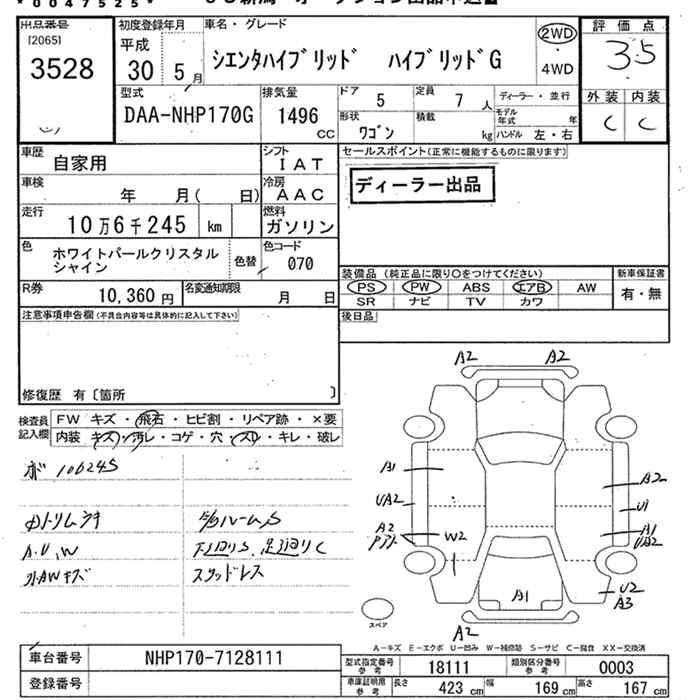 *0047525*
出品番号
[2065]
3528
初度登録年月
平成
30 5月
車名・グレード
シエンタハイブリッド ハイブリッドG
2WD
4WD
評価点
3.5
型式
DAA-NHP170G
排気量
1496
CC
ドア
5
定員
7人
形状
ワゴン
積載
kg
ディーラー・並行
モデル年式 年
ハンドル 左・右
外装 内装
C C
車歴
自家用
シフト
IAT
車検
年 月( 日)
冷房
AAC
走行
10万6千245 km
燃料
ガソリン
色
ホワイトパールクリスタル
シャイン
色替
色コード
070
R券
10,360円
名変通知期限
月 日
セールスポイント(正常に機能するものに限ります)
ディーラー出品
装備品(純正品に限り○をつけてください)
PS PW ABS エアB AW
SR ナビ TV カワ
新車保証書
有・無
後日品
注意事項申告欄(不具合内容等は具体的に記入して下さい)
修復歴 有〔箇所 〕
検査員
記入欄
FW キズ・飛石・ヒビ割・リペア跡・×要
内装 キズ・汚レ・コゲ・穴・スレ・キレ・破レ
ボ 106245
内トリムウキ
A.U.W
スタッドレス
A2 A2
A1
UA2
A2
W2
A2
U1
A1
UA2
A1
U2
A3
A2
スペア
A-キズ E-エクボ U-凹み W-補修跡 S-サビ C-腐食 XX-交換済
車台番号
NHP170-7128111
登録番号
型式指定番号
参考
18111
類別区分番号
参考
0003
車庫証明用
参考
長さ
423 cm
幅
169 cm
高さ
167 cm